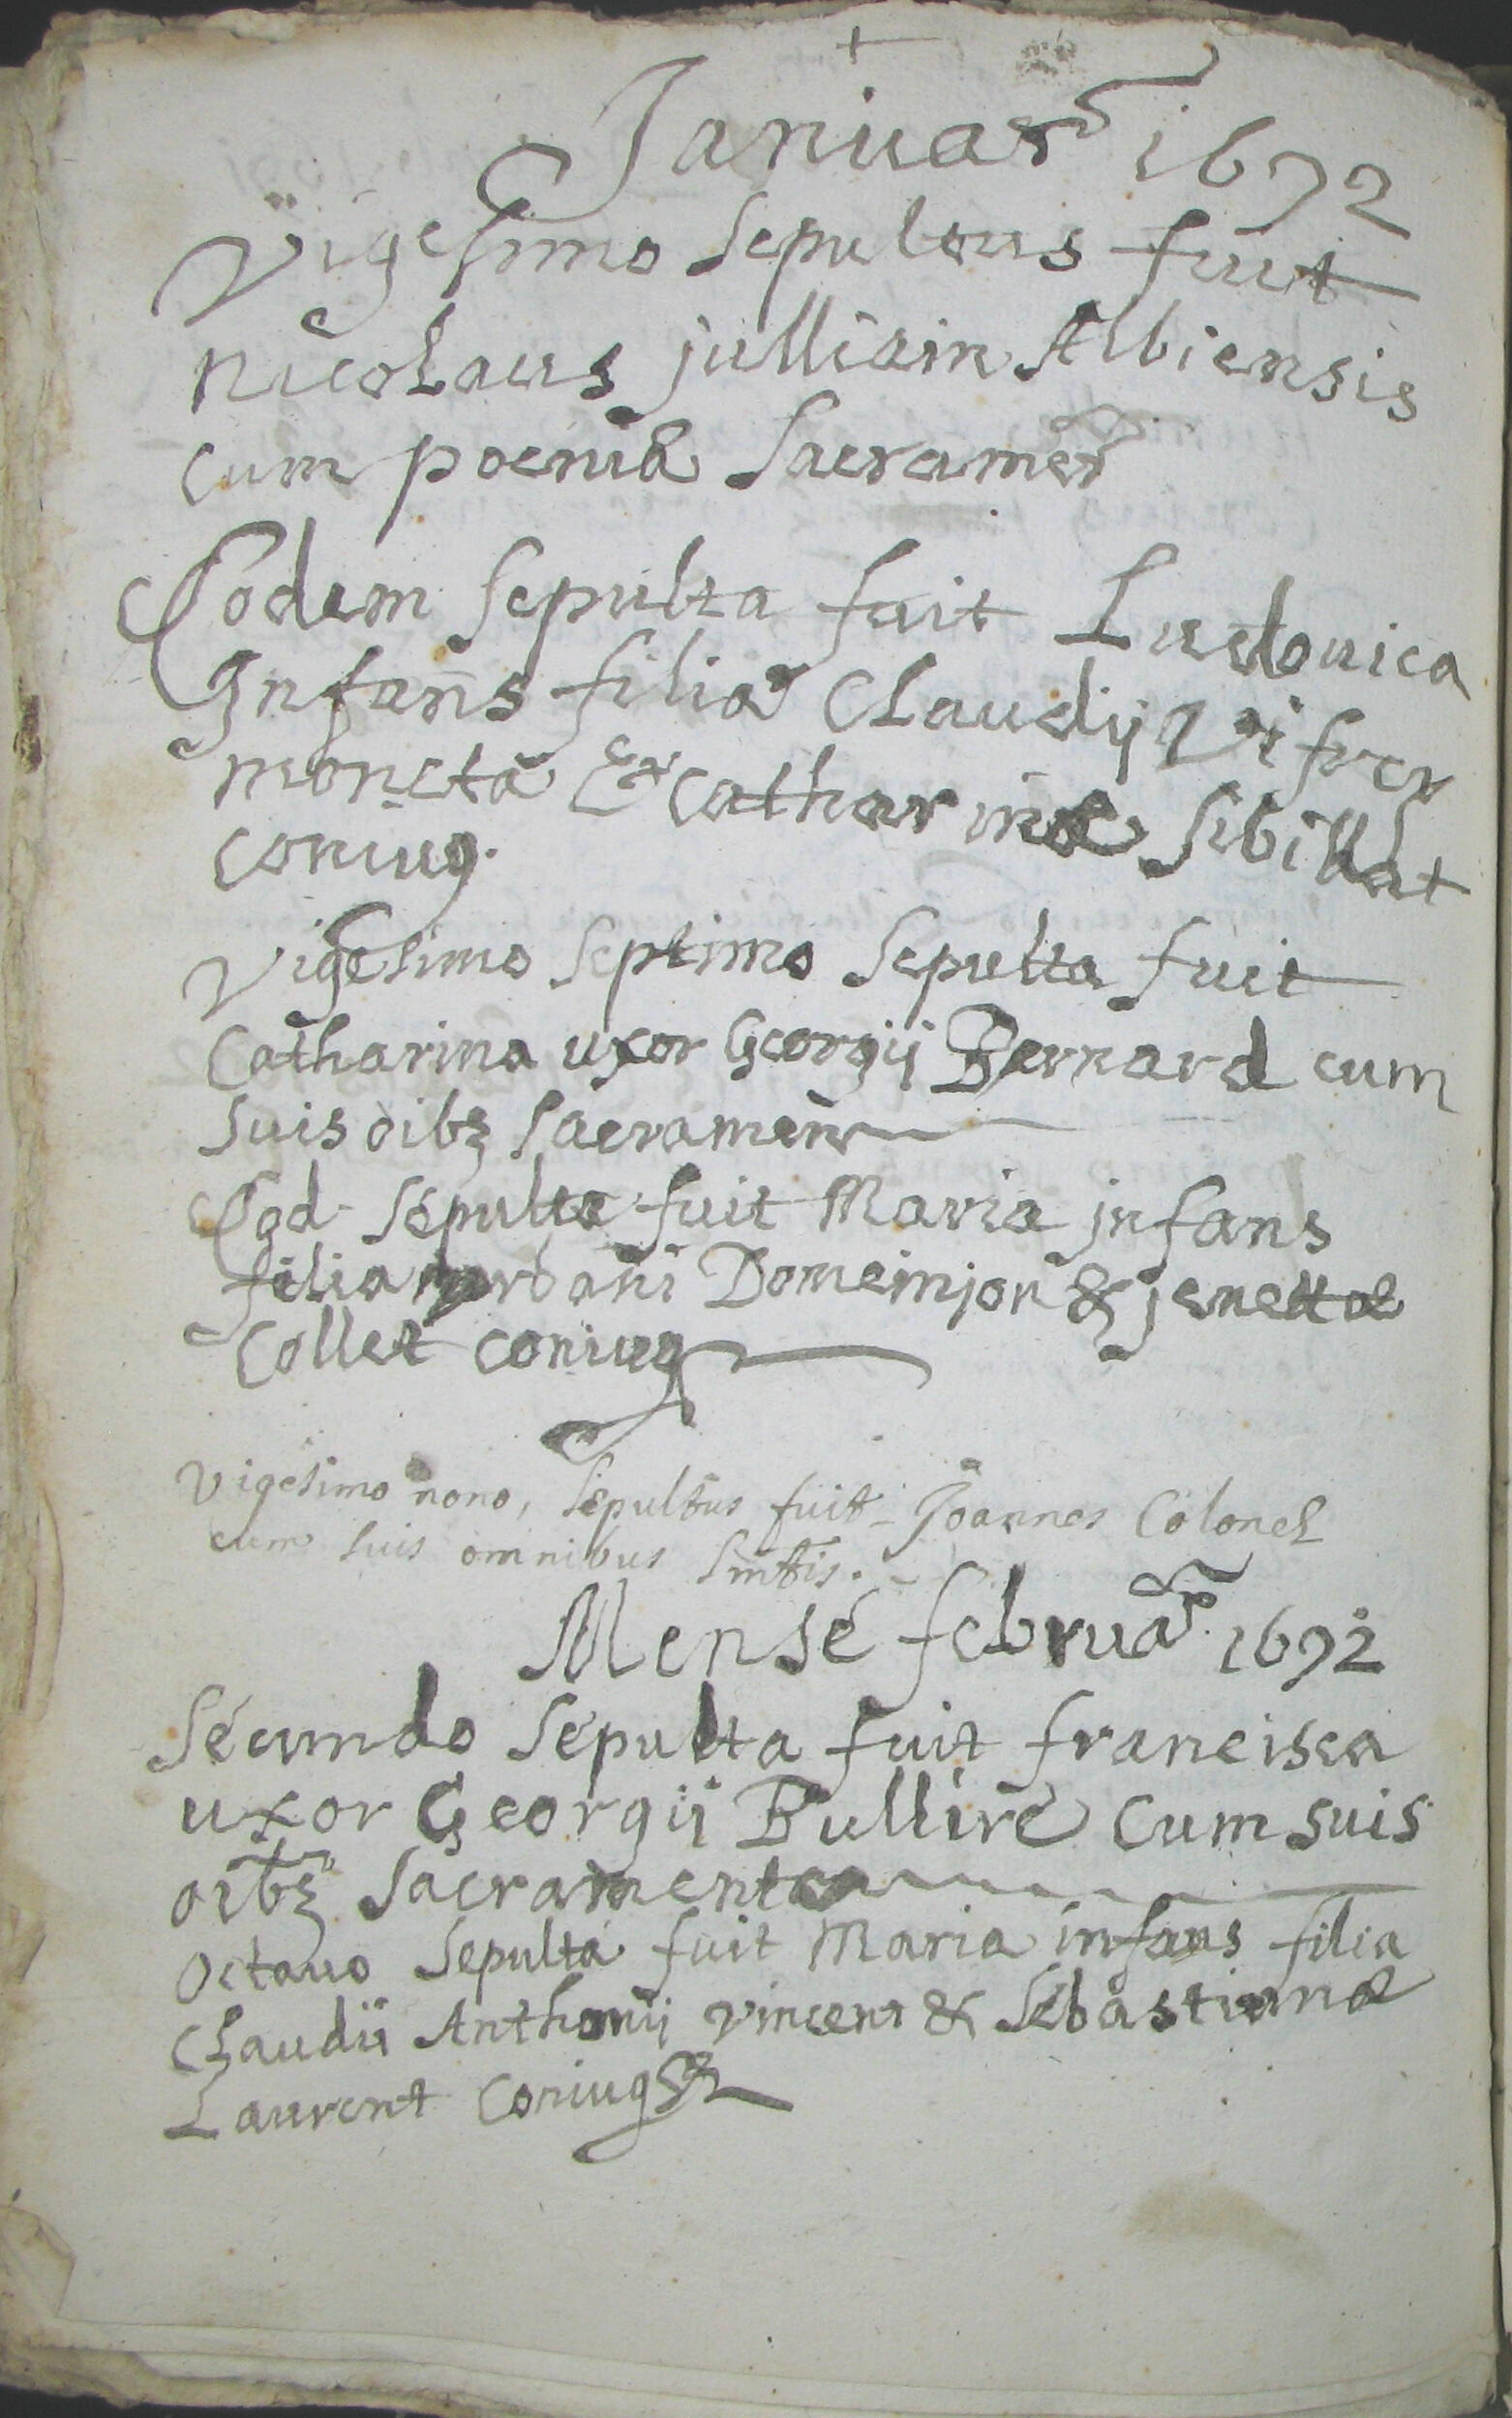 Januar 1692
Vigesimo Sepultus fuit
nicolaus julliain Albiensis
cum poeniã Sacramen
Eodem Sepulta fuit Ludouica
Infans filia Claudij
moneta & Catharinæ Sibillat
coniug.
Vigesimo Septimo Sepulta fuit
Catharina uxor Georgij Bernard cum
Suis oibz Sacramen
Eod. Sepulta fuit Maria jnfans
filia urbani Domeinjon & jenettæ
Collet coniug
Vigesimo nono, Sepultus fuit Joannes Colonel
cum suis omnibus Smtis.
Mense februa 1692
Secundo Sepulta fuit francisca
uxor Georgij Bullire cum suis
oibz Sacramento
Octauo Sepulta fuit Maria infans filia
Claudii Anthonij Vincent & Sebastianæ
Laurent Coniug